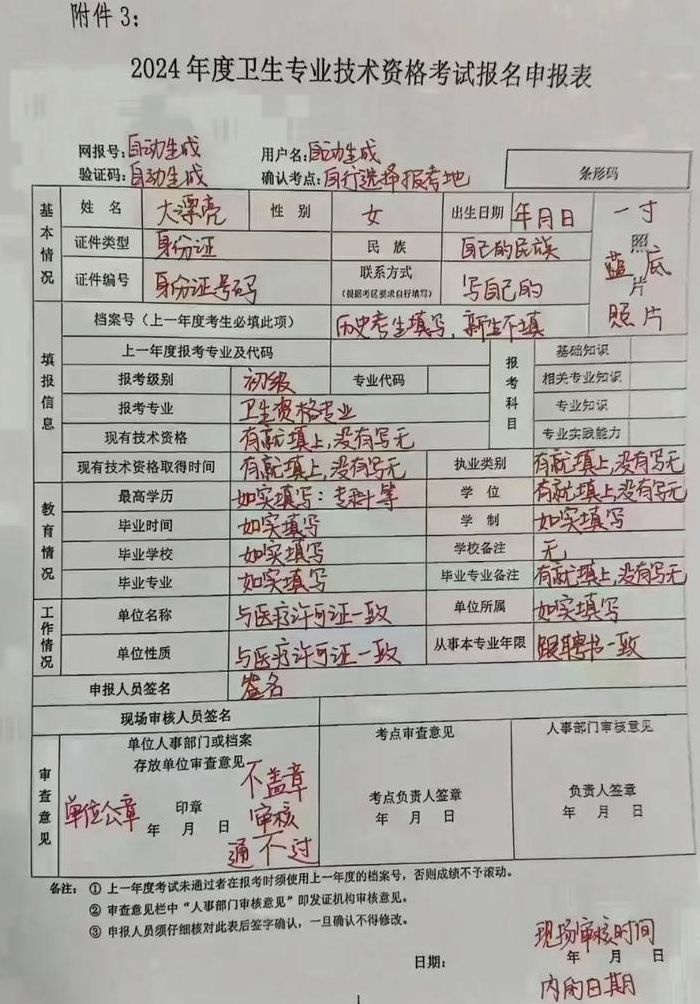 附件 3：
2024 年度卫生专业技术资格考试报名申报表
网报号：自动生成 用户名：自动生成
验证码：自动生成 确认考点：自行选择报考地 条形码
基本情况 姓 名 大漂亮 性 别 女 出生日期 年月日 一寸
证件类型 身份证 民 族 自己的民族 照 蓝底 片
证件编号 身份证号码 联系方式 写自己的 照片
（根据考区要求自行填写）
填报信息 档案号（上一年度考生必填此项） 历史考生填写，新生不填
上一年度报考专业及代码 报考科目 基础知识
报考级别 初级 专业代码 相关专业知识
报考专业 卫生资格专业 专业知识
现有技术资格 有就填上，没有写无 专业实践能力
现有技术资格取得时间 有就填上，没有写无 执业类别 有就填上，没有写无
教育情况 最高学历 如实填写：专科等 学 位 有就填上，没有写无
毕业时间 如实填写 学 制 如实填写
毕业学校 如实填写 学校备注 无
毕业专业 如实填写 毕业专业备注 有就填上，没有写无
工作情况 单位名称 与医疗许可证一致 单位所属 如实填写
单位性质 与医疗许可证一致 从事本专业年限 跟聘书一致
申报人员签名 签名
现场审核人员签名
审查意见 单位人事部门或档案 考点审查意见 人事部门审核意见
存放单位审查意见 不盖章
单位公章 印章 审核 考点负责人签章 负责人签章
年 月 日 通不过 年 月 日 年 月 日
备注： ① 上一年度考试未通过者在报考时须使用上一年度的档案号，否则成绩不予滚动。
② 审查意见栏中“人事部门审核意见”即发证机构审核意见。
③ 申报人员须仔细核对此表后签字确认，一旦确认不得修改。
现场审核时间
日期： 年 月 日
内的日期